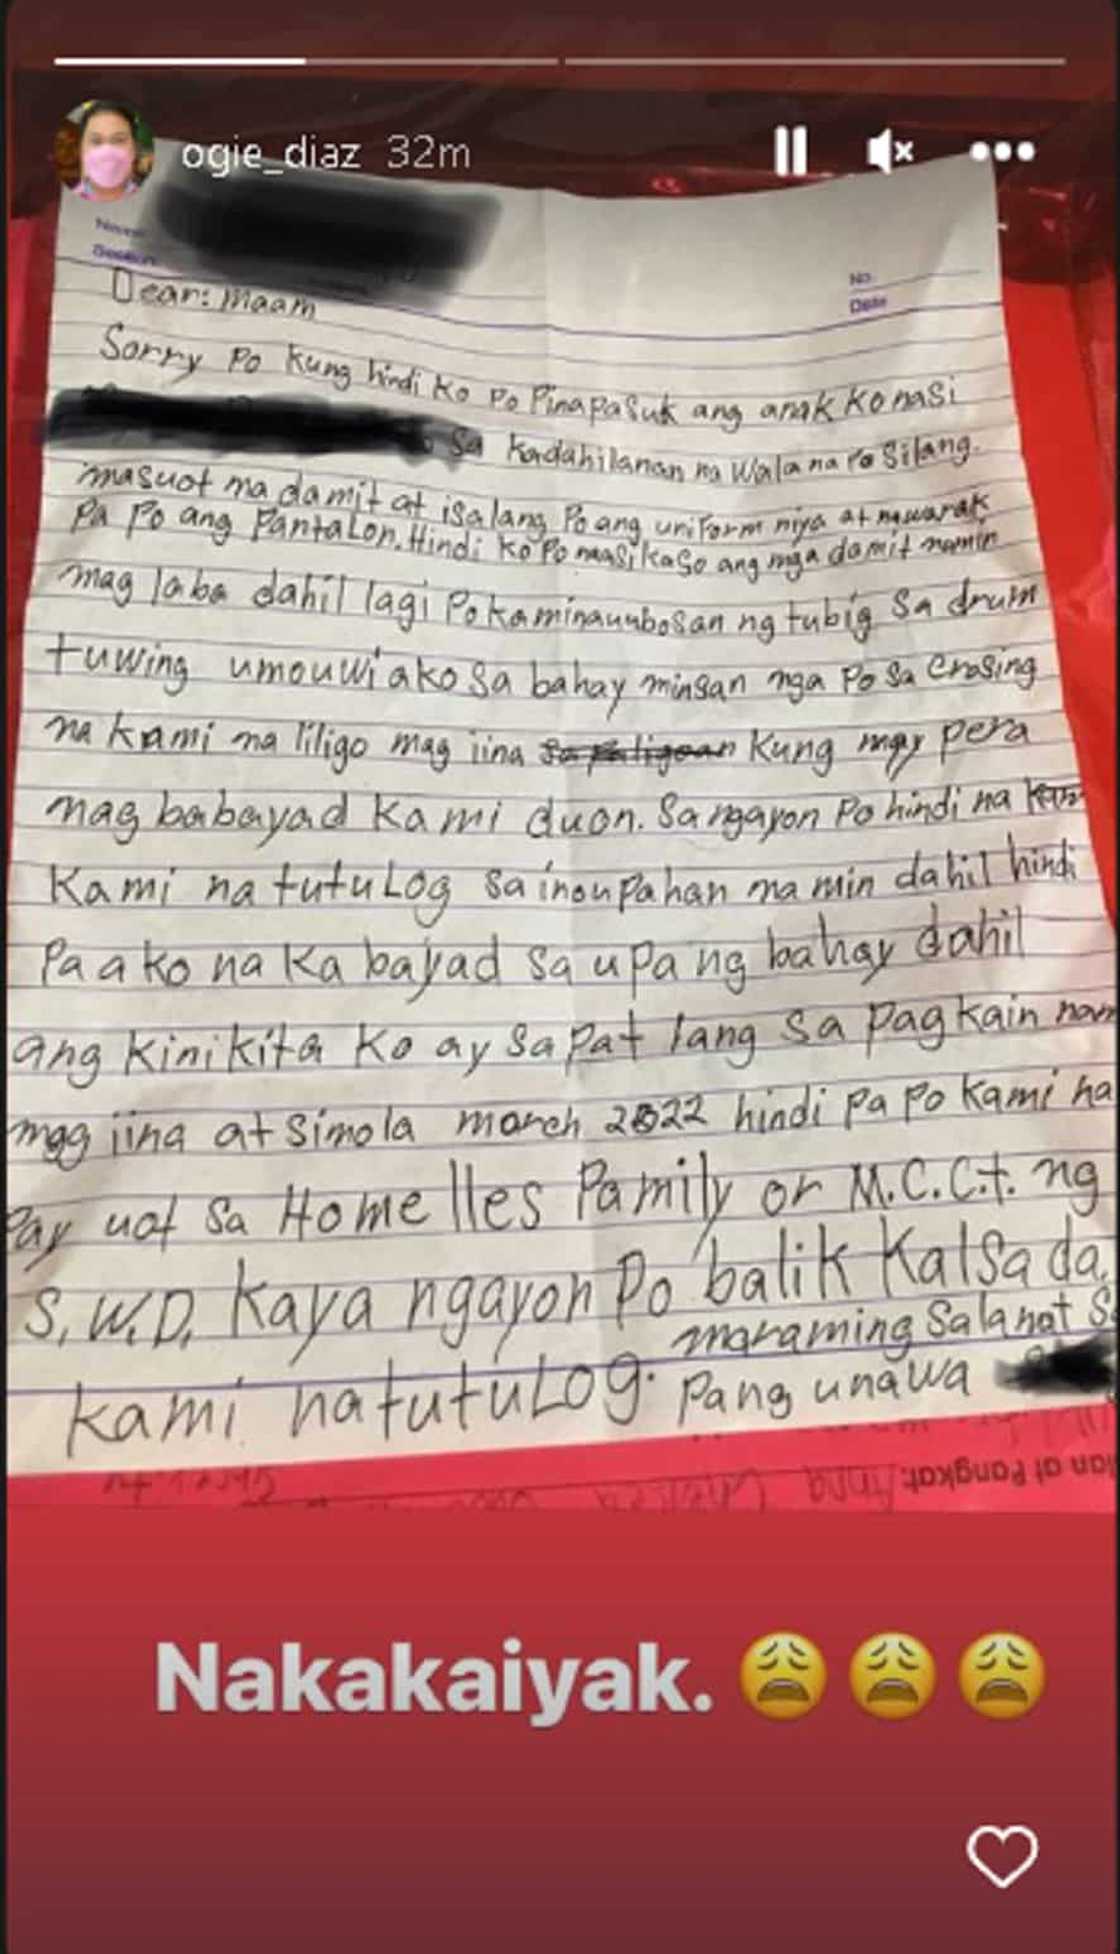 ogie_diaz 32m
Name:
Section:
No.
Date
Dear: maam
Sorry Po kung hindi ko po Pinapasuk ang anak ko nasi
sa kadahilanan na wala na Po Silang.
masuot na damit at isa lang Po ang uniform niya at nawarak
Pa Po ang PantaLon. Hindi ko Po maasikaso ang mga damit namin
mag laba dahil lagi Po kami nauubosan ng tubig sa drum
tuwing umouwi ako sa bahay minsan nga Po sa Crosing
na kami na liligo mag iina sa paligoan kung may pera
mag babayad kami duon. Sa ngayon Po hindi na kam
kami na tutuLog sa inoupahan na min dahil hindi
Pa ako na ka bayad sa upa ng bahay dahil
ang kinikita ko ay sapat lang sa pagkain nam
mag iina at simola march 2022 hindi pa po kami na
Pay uot sa Homelles Pamily or M.C.C.t. ng
S.W.D. kaya ngayon Po balik Kalsada.
kami natutuLog.
maraming Salamat S
Pang unawa
ian at Pangkat:
Nakakaiyak. 😩😩😩